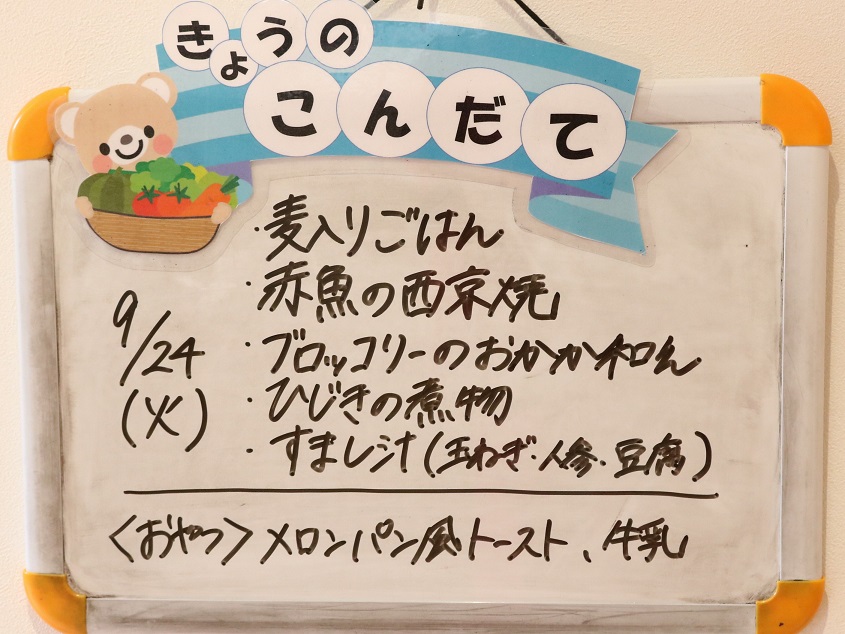 きょうの
こんだて
・麦入りごはん
・赤魚の西京焼
9/24
・ブロッコリーのおかか和え
(火)
・ひじきの煮物
・すまし汁(玉ねぎ・人参・豆腐)
〈おやつ〉メロンパン風トースト、牛乳